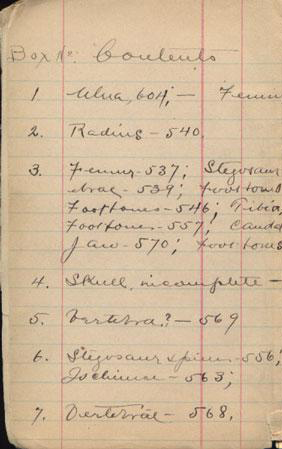 Box No. Contents
1 Ulna, 604; — Femu
2. Radius — 540,
3. Femur - 537; Stegosaur
- 539; Foot bones
Foot bones - 546; Tibia,
Foot bones - 557; Cauda
Jaw - 570; Foot bones
4. Skull, incomplete —
5. Vertebra? — 569
6. Stegosaur spines - 556;
Ischium - 563;
7. Vertebrae — 568.